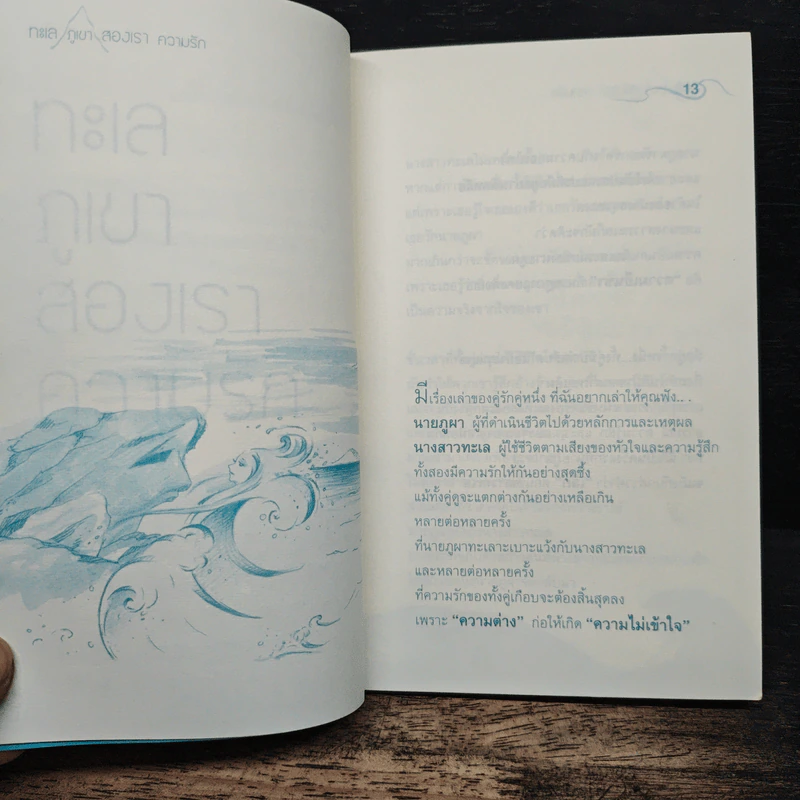 ทะเล ภูเขา สองเรา ความรัก
ทะเล
ภูเขา
สองเรา
ความรัก
13
มีเรื่องเล่าของคู่รักคู่หนึ่ง ที่ฉันอยากเล่าให้คุณฟัง...
นายภูผา ผู้ที่ดำเนินชีวิตไปด้วยหลักการและเหตุผล
นางสาวทะเล ผู้ใช้ชีวิตตามเสียงของหัวใจและความรู้สึก
ทั้งสองมีความรักให้กันอย่างสุดซึ้ง
แม้ทั้งคู่ดูจะแตกต่างกันอย่างเหลือเกิน
หลายต่อหลายครั้ง
ที่นายภูผาทะเลาะเบาะแว้งกับนางสาวทะเล
และหลายต่อหลายครั้ง
ที่ความรักของทั้งคู่เกือบจะต้องสิ้นสุดลง
เพราะ “ความต่าง” ก่อให้เกิด “ความไม่เข้าใจ”